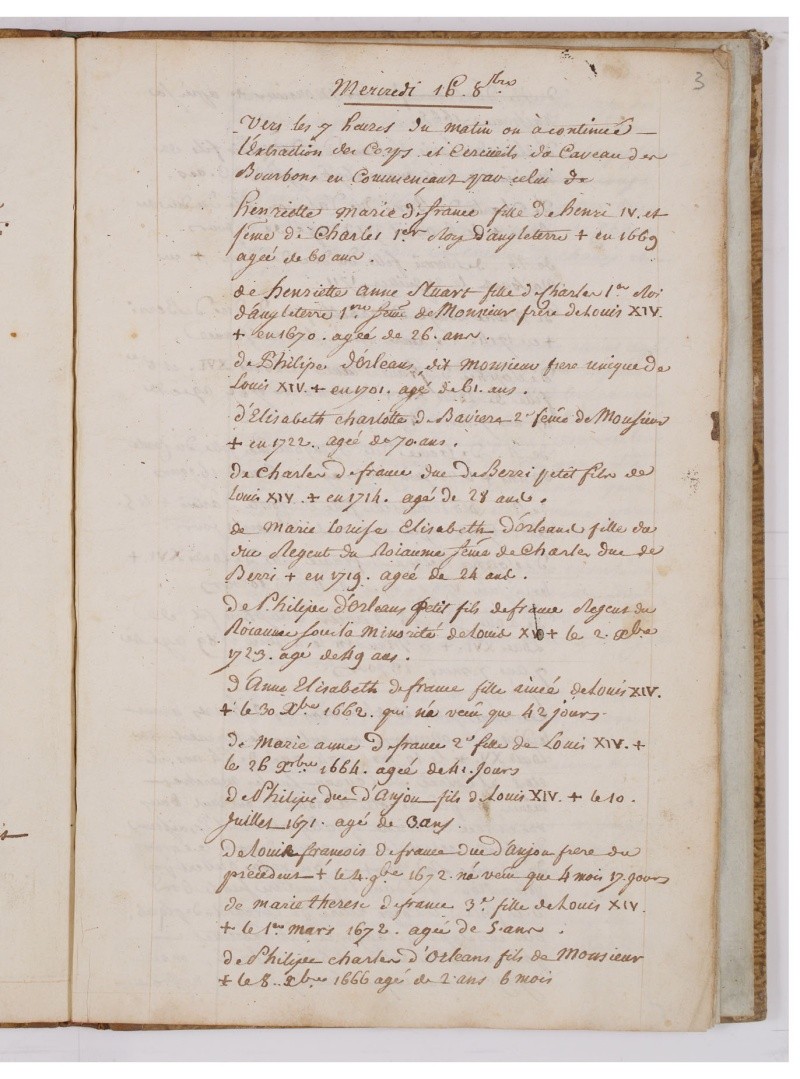 3
Mercredi 16e. 8bre
Vers les 7 heures du matin on à continué
l'Extraction des Corps et Cercueils du Caveau des
Bourbons en Commençant par celui de
henriette marie de france fille de henri IV. et
féme de Charles 1er Roy d'angleterre + en 1669
ageé de 60 ans.
de henriette anne Stuart fille de Charles 1er Roi
d'angleterre 1ere féme de Monsieur frére de Louis XIV.
+ en 1670. ageé de 26. ans.
de Philipe d'orleans, dit monsieur frere unique de
Louis XIV. + en 1701. agé de 61. ans.
d'Elisabeth charlotte de Baviere 2e féme de Monsieur
+ en 1722. ageé de 70. ans.
de Charles de france duc de Berri petit fils de
Louis XIV. + en 1714. agé de 28 ans.
de marie louise Elisabeth d'orleans fille du
duc Regent du Roiaume féme de Charles duc de
Berri + en 1719. ageé de 24 ans.
de Philipe d'orleans petit fils de france Regent du
Roiaume sous la minorité de Louis XV + le 2. Xbre
1723. agé de 49 ans.
d'Anne Elisabeth de france fille aineé de Louis XIV.
+ le 30 Xbre 1662. qui n'a vecu que 42 jours
de marie anne de france 2e fille de Louis XIV. +
le 26 Xbre 1664. ageé de 41. Jours
de Philipe duc d'Anjou fils de Louis XIV. + le 10.
Juillet 1671. agé de 3 ans.
de louis françois de france duc d'anjou frere du
précédent + le 4. 9bre 1672. n'a vecu que 4 mois 17. jours
de marie therese de france 3e fille de Louis XIV.
+ le 1er mars 1672. ageé de 5 ans.
de Philipe charles d'orleans fils de Monsieur
+ le 8. Xbre 1666 agé de 2 ans 6 mois